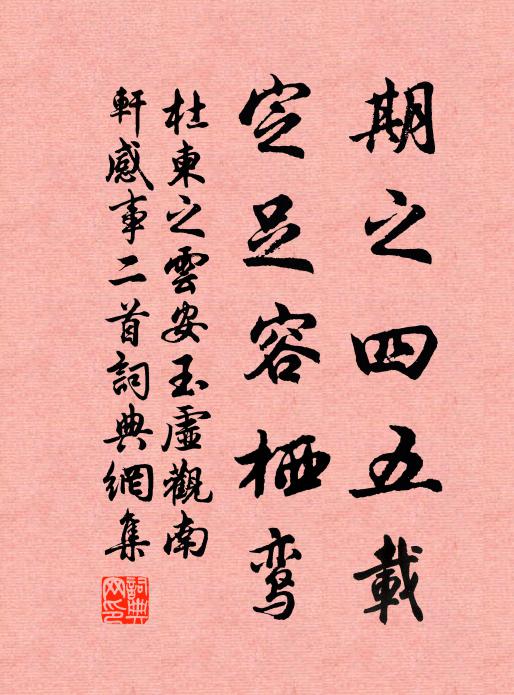 期之四五載
定足容栖鸾
杜東之雲安玉虛觀南
軒感事二首詞典網集
詞典
网印